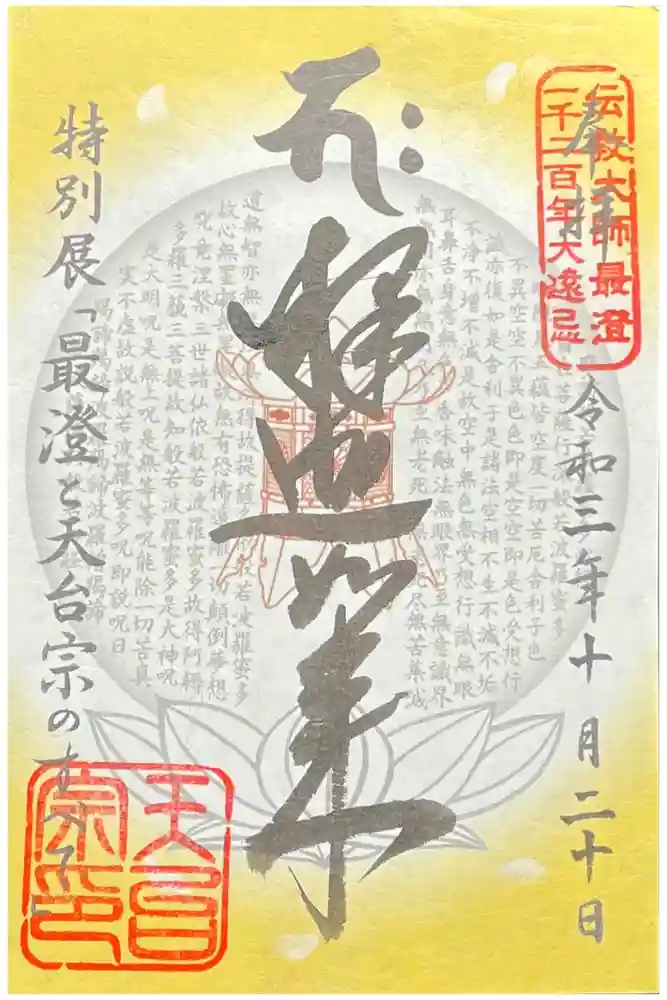 奉拝
伝教大師最澄
一千二百年大遠忌
令和三年十月二十日
釋迦如来
特別展「最澄と天台宗のすべて」
天台宗印
菩薩行深般若波羅蜜多
蘊皆空度一切苦厄舎利子色
不異空空不異色色即是空空即是色受想行
識亦復如是舎利子是諸法空相不生不滅不垢
不浄不増不減是故空中無色無受想行識無眼
耳鼻舌身意無 香味触法無眼界 至無意識界
無無 亦無無 至無老死 尽無苦集滅
道無智亦無 得故菩提薩 般若波羅蜜多
故心無罣 故無有恐怖遠離 切顛倒夢想
究竟涅槃三世諸仏依般若波羅蜜多故得阿耨
多羅三藐三菩提故知般若波羅蜜多是大神呪
是大明呪是無上呪是無等等呪能除一切苦真
実不虚故説般若波羅蜜多呪即説呪曰
羯諦羯諦波羅羯諦波羅僧羯諦